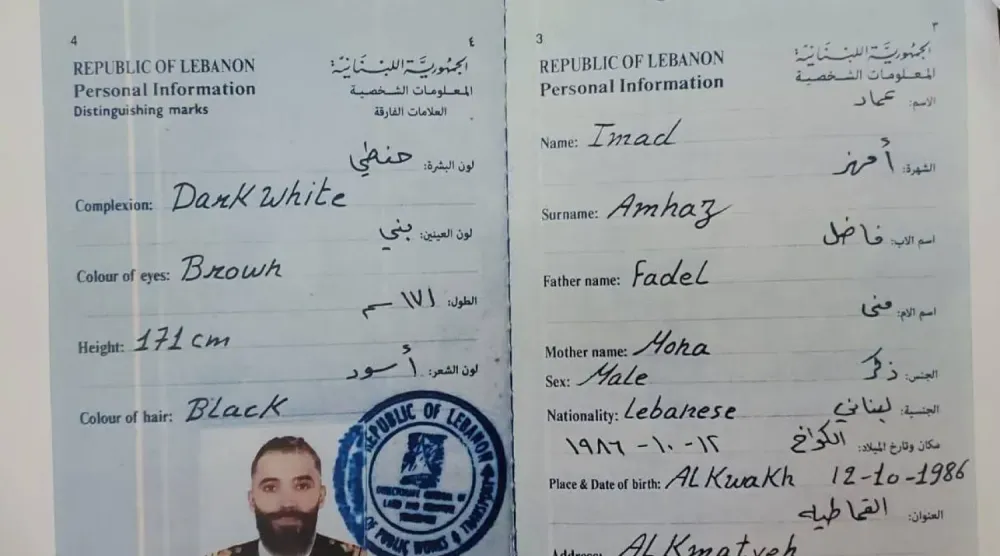 4 ٤
REPUBLIC OF LEBANON الجمهوريَّة اللبنَانيَّة
Personal Information المعلومات الشخصية
Distinguishing marks العلامات الفارقة
لون البشرة: حنطي
Complexion: Dark White
لون العينين: بني
Colour of eyes: Brown
الطول: ١٧١ سم
Height: 171 cm
لون الشعر: أسود
Colour of hair: Black
REPUBLIC OF LEBANON
OF PUBLIC WORKS &
3 ٣
REPUBLIC OF LEBANON الجمهوريَّة اللبنَانيَّة
Personal Information المعلومات الشخصية
الاسم: عماد
Name: Imad
الشهرة: أمهز
Surname: Amhaz
اسم الاب: فاضل
Father name: Fadel
اسم الام: منى
Mother name: Mona
الجنس: ذكر
Sex: Male
الجنسية: لبناني
Nationality: Lebanese
مكان وتاريخ الميلاد: الكواخ ١٢-١٠-١٩٨٦
Place & Date of birth: AL Kwakh 12-10-1986
العنوان: القماطيه
Address: AL Kmatyeh